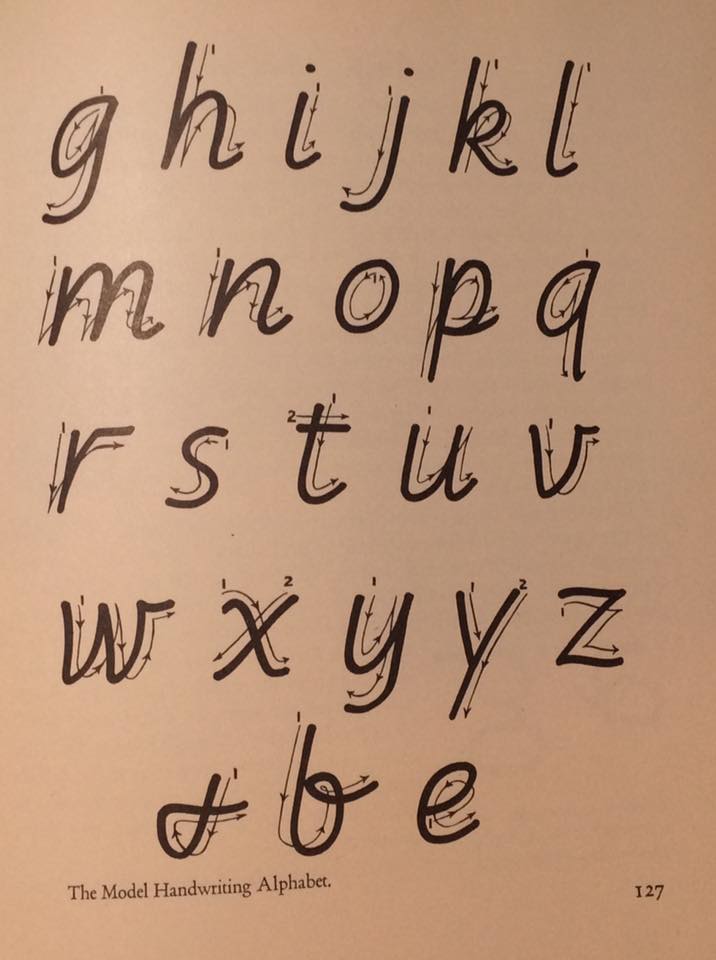 g h i j k l
m n o p q
r s t u v
w x y y z
b e
The Model Handwriting Alphabet. 127